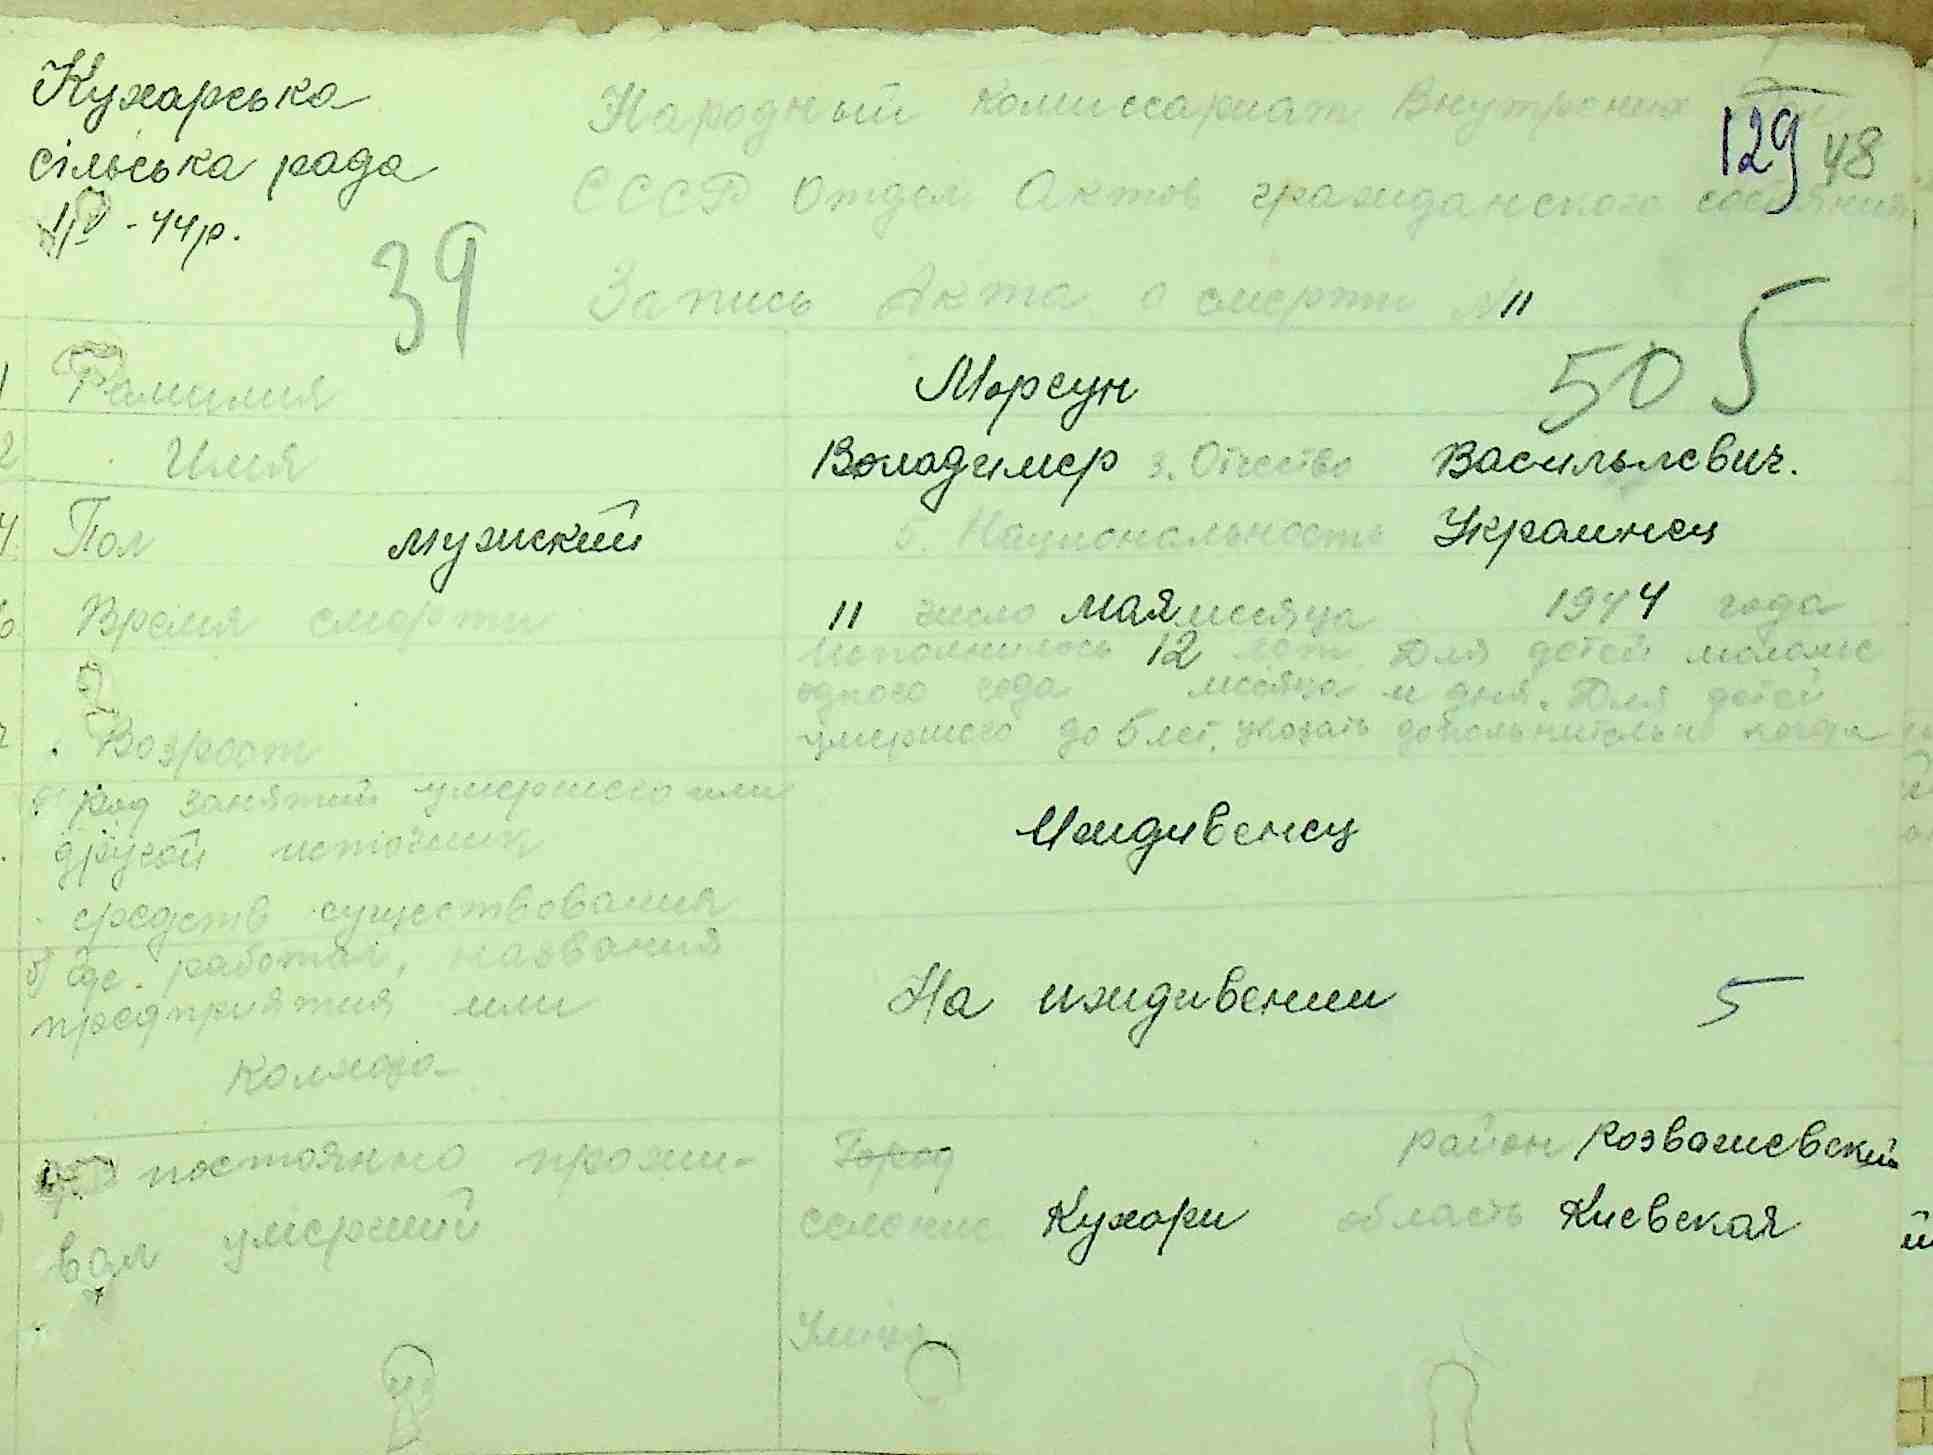 Кухарська
сільська рада
IV -44р.
39
Народный комиссариат Внутрених
129 48
СССР Отдел Актов гражданского состояния
Запись Акта о смерти №11
Фамилия Морсун 50 5
Имя Володимер 3. Отчество Васильлевич.
4 Пол мужский 5. Национальность Украинец
Время смерти 11 число мая месяца 1944 года
Исполнилось 12 лет. Для детей моложе
одного года месяца и дня. Для детей
умершего до 5 лет, указать дополнительно когда
Возраст
род занятий умершего или
другой источник
средств существования
Иждивенец
б) где работал, названия
предприятия или
Колхоза
На иждивении 5
постоянно прожи-
вал умерший
Город район Розважевский
селение Кухари область Киевская
Улица